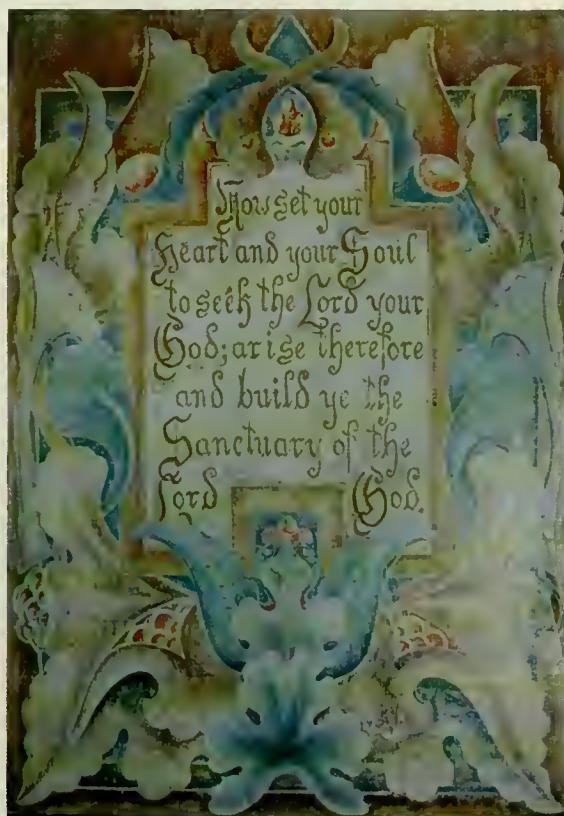 Now set your
Heart and your Soul
to seek the Lord your
God; arise therefore
and build ye the
Sanctuary of the
Lord God.